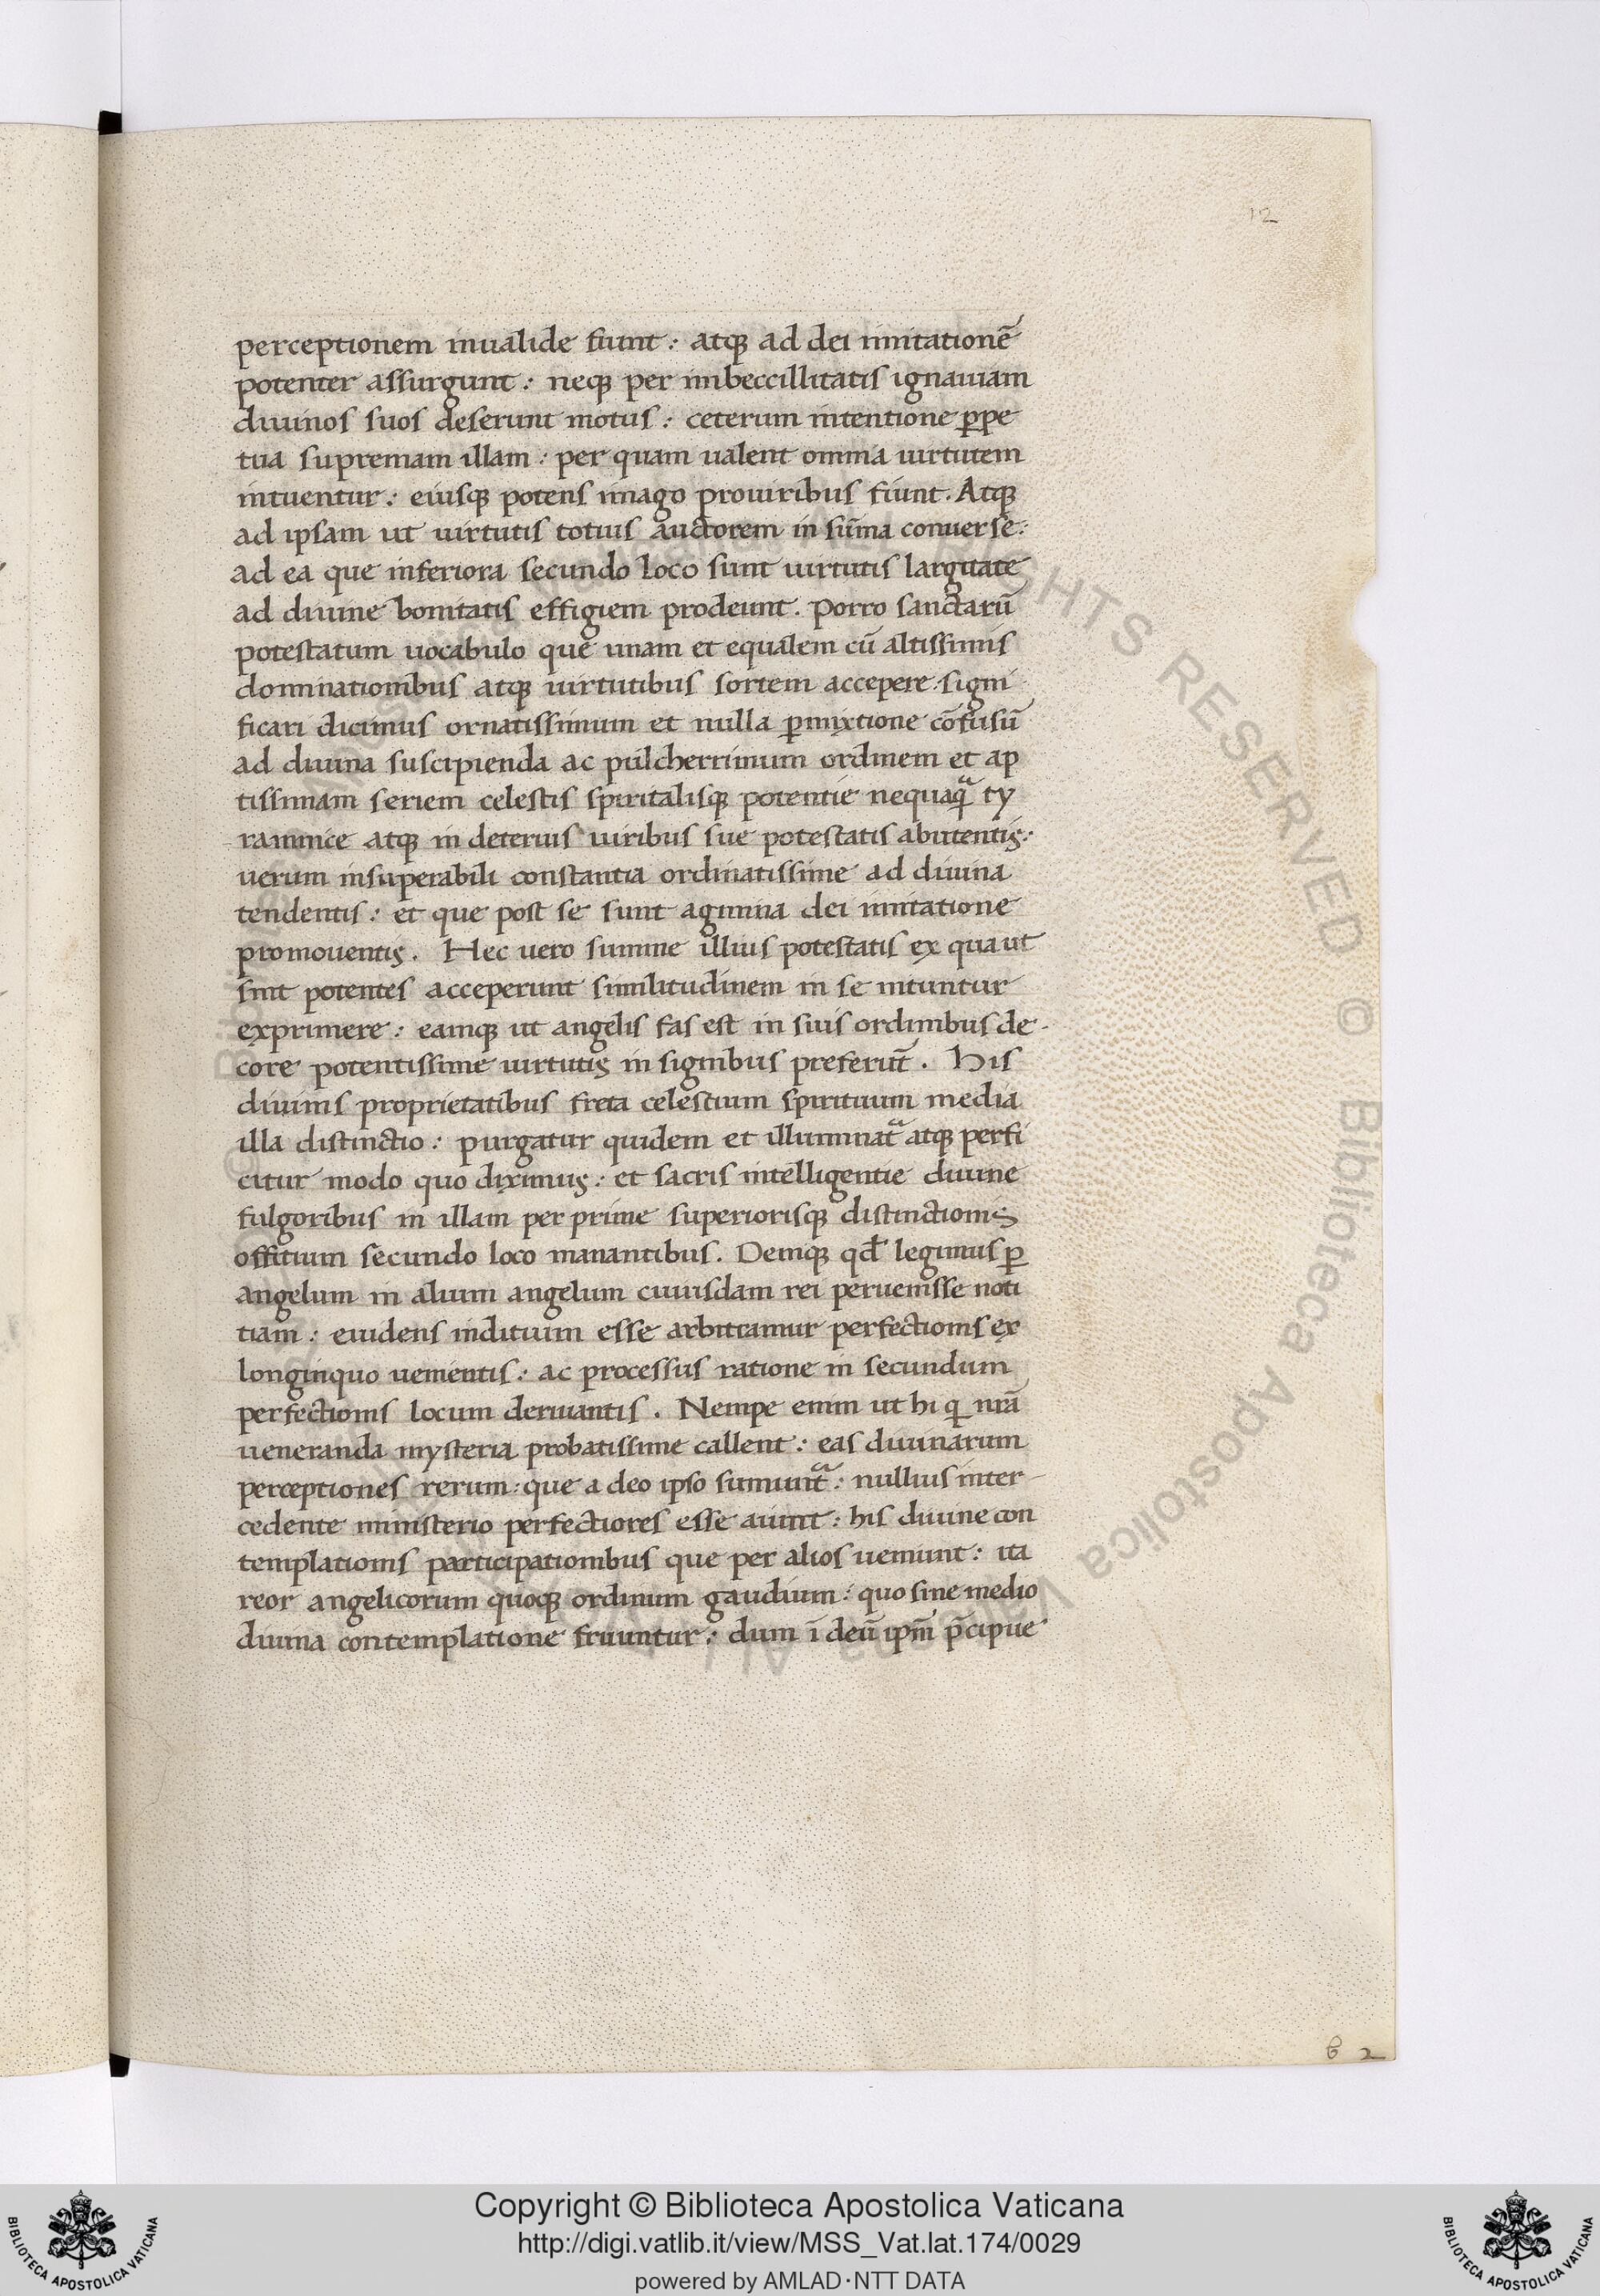 12
perceptionem inualide fiunt: atq; ad dei imitationē
potenter assurgunt: neq; per imbeccillitatis ignauiam
diuinos suos deserunt motus: ceterum intentione ꝑpe
tua supremam illam: per quam ualent omnia uirtutem
intuentur: eiusq; potens imago pro uiribus fiunt. Atq;
ad ipsam ut uirtutis totius auctorem in sūma conuerse:
ad ea que inferiora secundo loco sunt uirtutis largitate
ad diuine bonitatis effigiem prodeunt. Porro sanctarū
potestatum uocabulo que unam et equalem cū altissimis
dominationibus atq; uirtutibus sortem accepere: signi
ficari dicimus ornatissimum et nulla ꝑmixtione cōfusū
ad diuina suscipienda ac pulcherrimum ordinem et ap
tissimam seriem celestis spiritalisq; potentie nequaqᵃ ty
rannice atq; in deterius uiribus sue potestatis abutentis:
uerum insuperabili constantia ordinatissime ad diuina
tendentis: et que post se sunt agmina dei imitatione
promouentis. Hec uero summe illius potestatis ex qua ut
sint potentes acceperunt similitudinem in se nituntur
exprimere: eamq; ut angelis fas est in suis ordinibus de-
core potentissime uirtutis insignibus preferūt. His
diuinis proprietatibus freta celestium spirituum media
illa distinctio: purgatur quidem et illuminatᵃ atq; perfi
citur modo quo diximus: et sacris intelligentie diuine
fulgoribus in illam per prime superiorisq; distinctionis
offitium secundo loco manantibus. Deniq; qđ legimus ꝑ
angelum in alium angelum cuiusdam rei peruenisse noti
tiam: euidens inditium esse arbitramur perfectionis ex
longinquo uenientis: ac processus ratione in secundum
perfectionis locum deriuantis. Nempe enim ut hi q nrā
ueneranda mysteria probatissime callent: eas diuinarum
perceptiones rerum: que a deo ipso sumuntᵃ: nullius inter-
cedente ministerio perfectiores esse aiunt: his diuine con
templationis participationibus que per alios ueniunt: ita
reor angelicorum quoq; ordinum gaudium: quo sine medio
diuina contemplatione fruuntur: dum ī deū ipm̄ p̄cipue
b 2
Copyright © Biblioteca Apostolica Vaticana
http://digi.vatlib.it/view/MSS_Vat.lat.174/0029
powered by AMLAD·NTT DATA
BIBLIOTECA APOSTOLICA VATICANA
BIBLIOTECA APOSTOLICA VATICANA